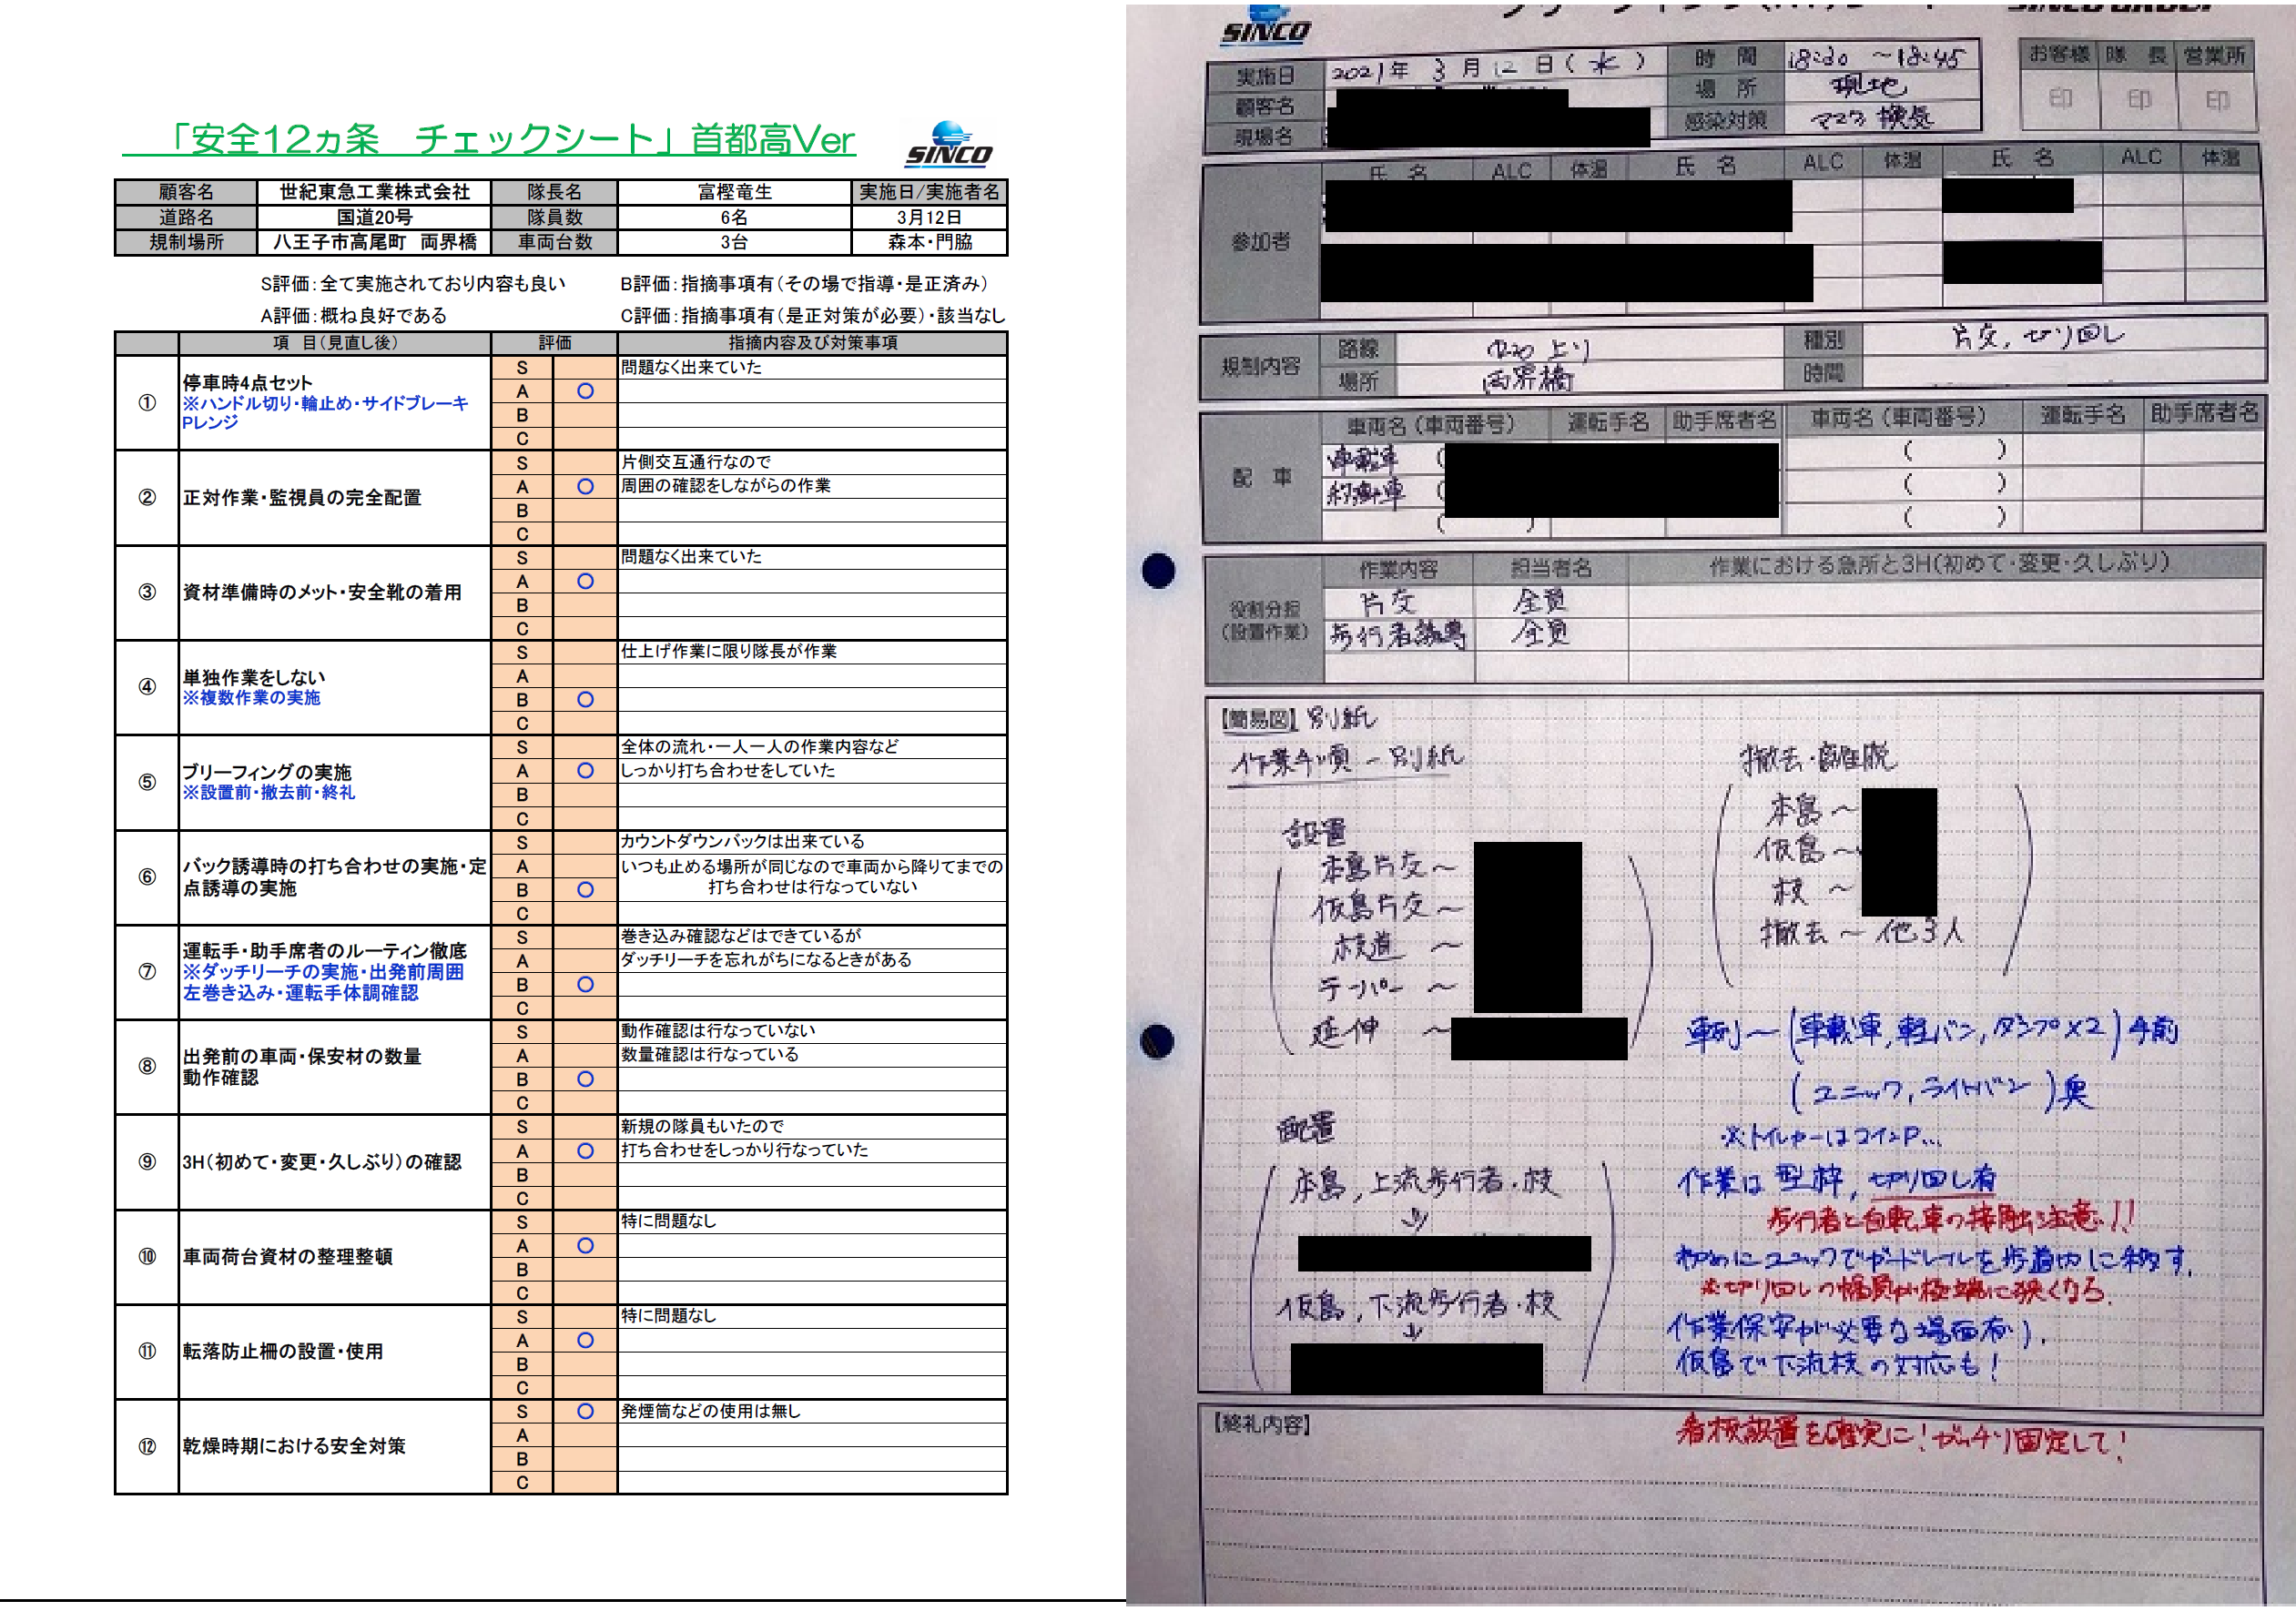 「安全12ヵ条　チェックシート」首都高Ver
SINCO
顧客名 世紀東急工業株式会社 隊長名 富樫竜生 実施日/実施者名
道路名 国道20号 隊員数 6名 3月12日
規制場所 八王子市高尾町　両界橋 車両台数 3台 森本・門脇
S評価：全て実施されており内容も良い B評価：指摘事項有（その場で指導・是正済み）
A評価：概ね良好である C評価：指摘事項有（是正対策が必要）・該当なし
項　目（見直し後） 評価 指摘内容及び対策事項
① 停車時4点セット
※ハンドル切り・輪止め・サイドブレーキ
Pレンジ
S 問題なく出来ていた
A ○
B
C
② 正対作業・監視員の完全配置
S 片側交互通行なので
A ○ 周囲の確認をしながらの作業
B
C
③ 資材準備時のメット・安全靴の着用
S 問題なく出来ていた
A ○
B
C
④ 単独作業をしない
※複数作業の実施
S 仕上げ作業に限り隊長が作業
A
B ○
C
⑤ ブリーフィングの実施
※設置前・撤去前・終礼
S 全体の流れ・一人一人の作業内容など
A ○ しっかり打ち合わせをしていた
B
C
⑥ バック誘導時の打ち合わせの実施・定
点誘導の実施
S カウントダウンバックは出来ている
A いつも止める場所が同じなので車両から降りてまでの
B ○ 打ち合わせは行なっていない
C
⑦ 運転手・助手席者のルーティン徹底
※ダッチリーチの実施・出発前周囲
左巻き込み・運転手体調確認
S 巻き込み確認などはできているが
A ダッチリーチを忘れがちになるときがある
B ○
C
⑧ 出発前の車両・保安材の数量
動作確認
S 動作確認は行なっていない
A 数量確認は行なっている
B ○
C
⑨ 3H（初めて・変更・久しぶり）の確認
S 新規の隊員もいたので
A ○ 打ち合わせをしっかり行なっていた
B
C
⑩ 車両荷台資材の整理整頓
S 特に問題なし
A ○
B
C
⑪ 転落防止柵の設置・使用
S 特に問題なし
A ○
B
C
⑫ 乾燥時期における安全対策
S ○ 発煙筒などの使用は無し
A
B
C
SINCO
実施日 2021年 3月 12日（水） 時　間 18:30 ～18:45 お客様 隊　長 営業所
顧客名 場　所 現地 印 印 印
現場名 感染対策 マスク 換気
氏　名 ALC 体温 氏　名 ALC 体温 氏　名 ALC 体温
参加者
規制内容 路線 R20 上り 種別 片交, 切り回し
場所 両界橋 時間
配　車 車両名（車両番号） 運転手名 助手席者名 車両名（車両番号） 運転手名 助手席者名
車載車 （ （ ）
（ （ ）
（ ） （ ）
役割分担
（設置作業）
作業内容 担当者名 作業における急所と3H（初めて・変更・久しぶり）
片交 全員
歩行者誘導 全員
【簡易図】別紙
作業手順－別紙
設置
本島片交～
仮島片交～
枝道 ～
テーパー ～
延伸 ～
撤去・離脱
本島～
仮島～
枝 ～
撤去～他3人
車列～（車載車, 軽バン, ダンプ×2）手前
（ユニック, ライトバン）奥
※トイレカーはコインP...
配置
本島, 上流歩行者・枝
↓
仮島, 下流歩行者・枝
↓
作業は型枠, 切り回し有
歩行者と自転車の接触注意!!
初めにユニックでガードレールを歩道内に移す.
※切り回しの幅員が極端に狭くなる.
作業保安が必要な場面有り.
仮島で下流枝の対応も!
【終礼内容】
看板設置を確実に! ガッチリ固定して!